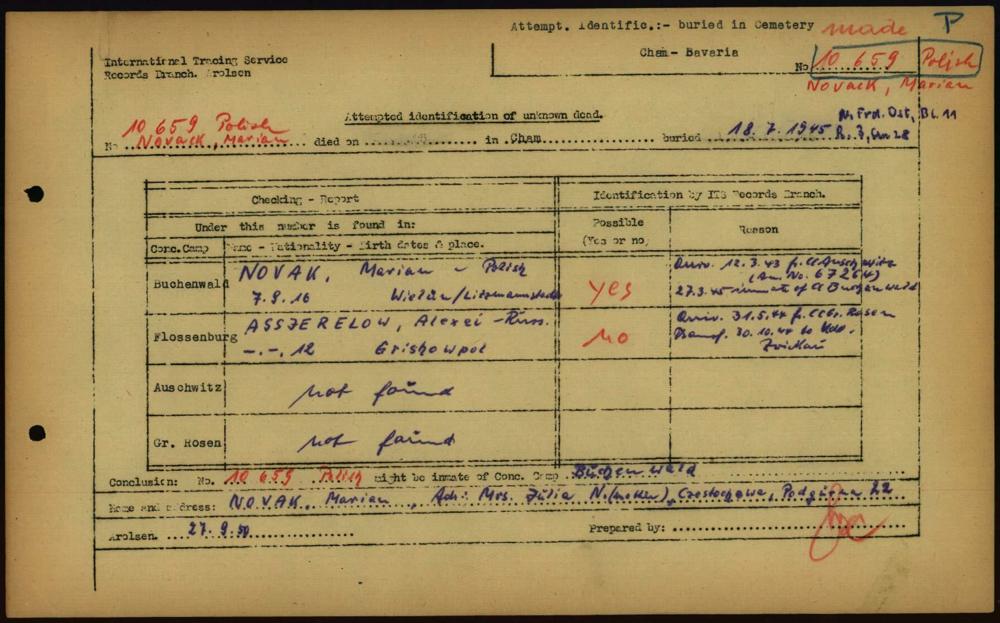 Attempt. Identific.:- buried in Cemetery made P
Cham - Bavaria
No 10 659 Polish
NOVACK, Marian
International Tracing Service
Records Branch. Arolsen
Attempted identification of unknown dead.
10 659 Polish
No NOVACK, Marian died on in Cham buried 18.7.1945
Checking - Report Identification by ITS Records Branch.
Under this number is found in: Possible (Yes or no) Reason
Conc.Camp Name - Nationality - Birth dates & place.
Buchenwald NOVAK, Marian - Polish
7.9.16 Wielun/Litzmannstadt
yes
Arriv. 12.3.43 f. CC Auschwitz
27.3.45 inmate of CC Buchenwald
Flossenburg ASSJERELOW, Alexei - Russ.
-.-. 12 Grishowpol
No
Arriv. 31.5.44 f. CC Gr. Rosen
Transf. 30.10.44 to Kdo.
Zwickau
Auschwitz not found
Gr. Rosen not found
Conclusion: No. 10 659 Polish might be inmate of Conc. Camp Buchenwald
Name and address: NOVAK, Marian, Adr: Mrs. Julia N. (mother), Czestochowa, 22
Arolsen. 27.9.50 Prepared by: